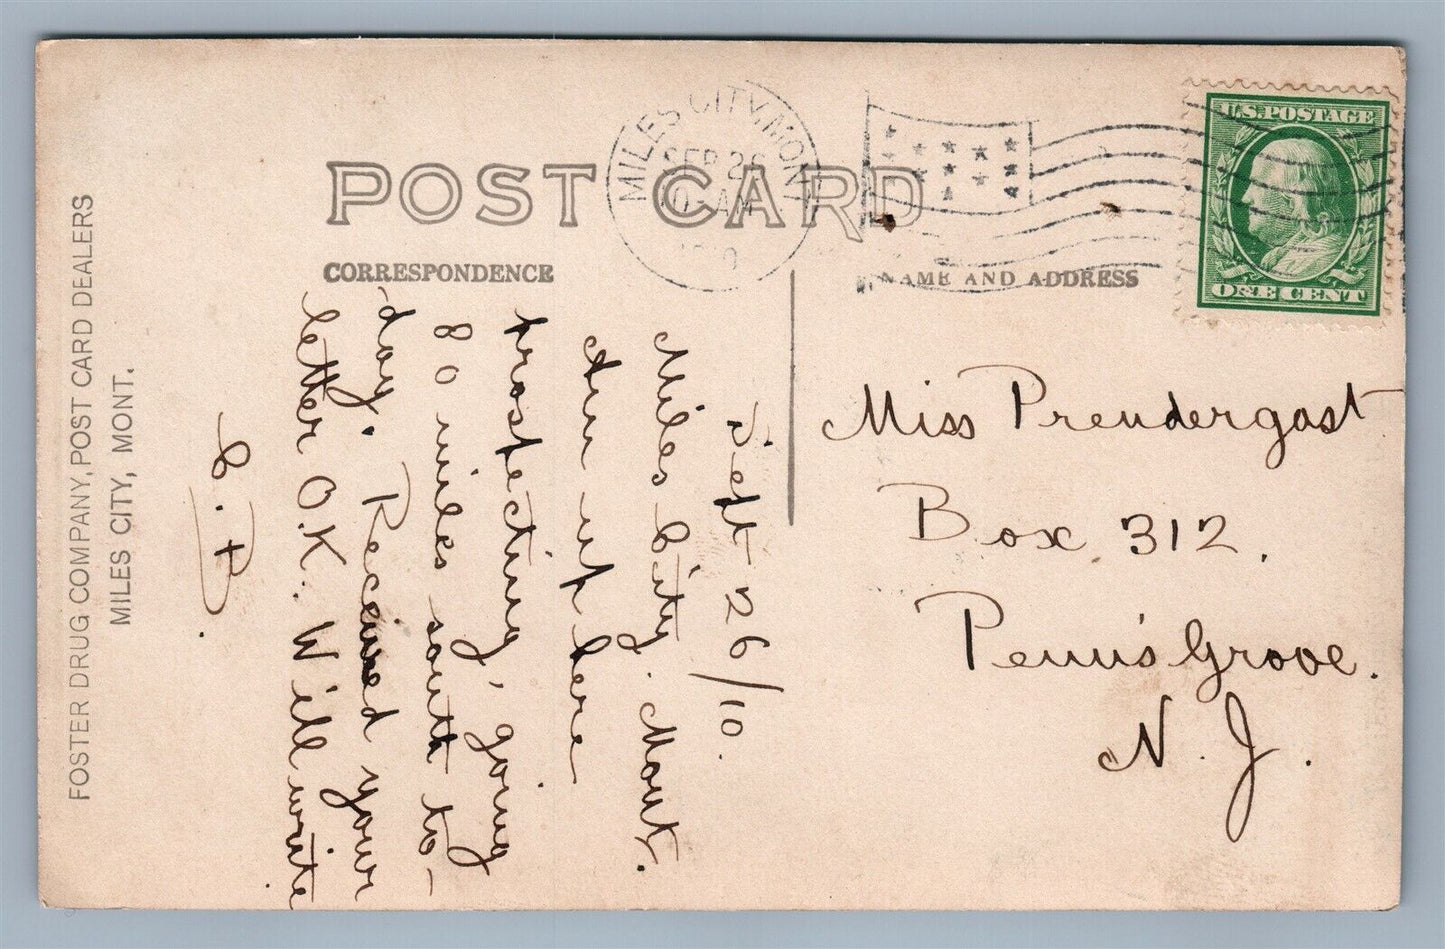 POST CARD
CORRESPONDENCE
NAME AND ADDRESS
MILES CITY, MONT
SEP 26
10-AM
1910
U.S. POSTAGE
ONE CENT
FOSTER DRUG COMPANY, POST CARD DEALERS
MILES CITY, MONT.
Sept 26/10.
Miles City. Mont.
Am up here
prospecting, going
80 miles south to-
day. Received your
letter O.K. Will write
C. P.
Miss Prendergast
Box 312.
Penn's Grove.
N. J.